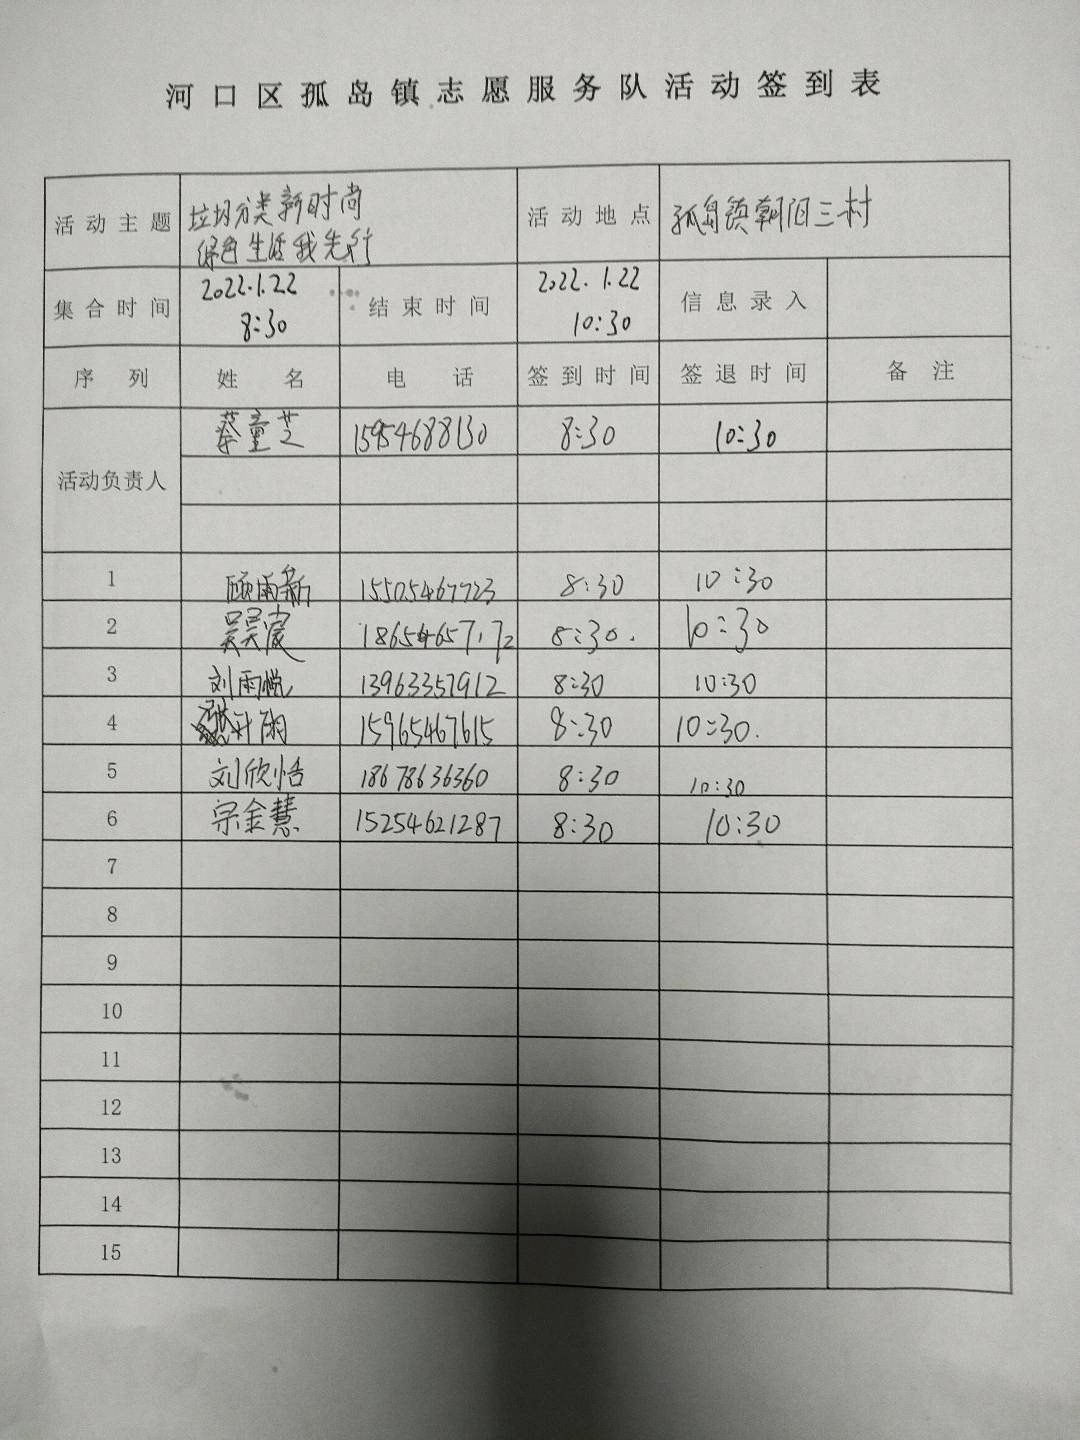 河口区孤岛镇志愿服务队活动签到表
活动主题 垃圾分类新时尚 绿色生活我先行 活动地点 孤岛镇朝阳三村
集合时间 2022.1.22 8:30 结束时间 2022.1.22 10:30 信息录入
序列 姓名 电话 签到时间 签退时间 备注
活动负责人 蔡童芝 15954688130 8:30 10:30
1 顾雨新 15505467723 8:30 10:30
2 吴昊宸 8:30. 10:30
3 刘雨悦 13963357912 8:30 10:30
4 15965467615 8:30 10:30.
5 刘欣恬 18678636360 8:30 10:30
6 宗金慧 15254621287 8:30 10:30
7
8
9
10
11
12
13
14
15